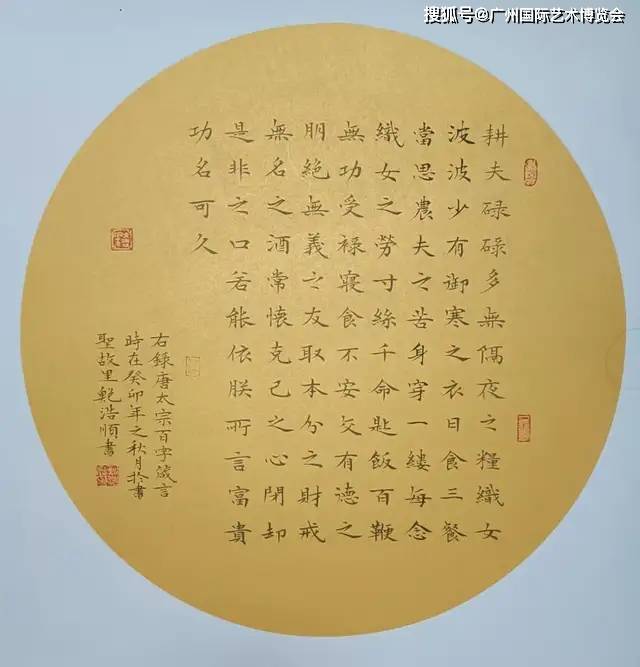 搜狐号@广州国际艺术博览会
耕夫碌碌多無隔夜之糧織女
波波少有御寒之衣日食三餐
當思農夫之苦身穿一縷每念
織女之勞寸絲千命匙飯百鞭
無功受禄寢食不安交有德之
朋絕無義之友取本分之財戒
無名之酒常懷克己之心閉却
是非之口若能依朕所言富貴
功名可久
右錄唐太宗百字箴言
時在癸卯年之秋月於書
聖故里鮑浩順書